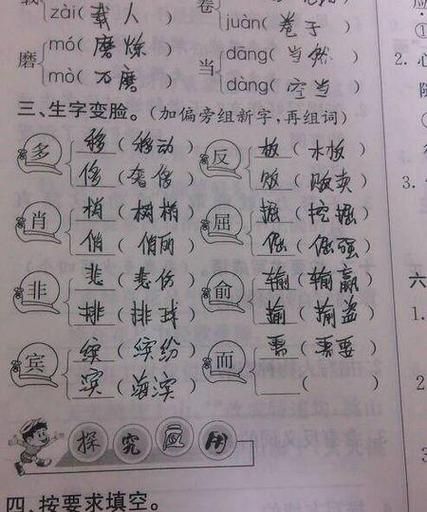 zài( 载人 ) 卷 juàn( 卷子 )
mó( 磨炼 ) dāng( 当然 )
磨 当
mò( 磨 ) dàng( 空当 )
三、生字变脸。(加偏旁组新字,再组词)
多 移( 移动 ) 反 板( 木板 )
侈( 奢侈 ) 贩( 贩卖 )
肖 梢( 树梢 ) 屈 掘( 挖掘 )
俏( 俏丽 ) 倔( 倔强 )
非 悲( 悲伤 ) 俞 输( 输赢 )
排( 排球 )
宾 缤( 缤纷 ) 而 需( 需要 )
滨( 海滨 ) ( )
探究应用
四、按要求填空。
2.
3.
六
1.
2
3